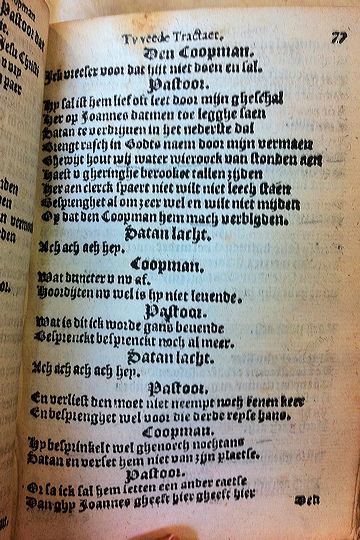 Tvveede Tractaet. 77
Den Coopman.
Ick vreeser voor dat hijt niet doen en sal.
Pastoor.
Hy sal ist hem lief oft leet door mijn gheschal
Her op Joannes datmen toe legghe saen
Satan te verdrijuen in het nederste dal
Brengt rasch in Godts naem door mijn vermaen
Ghewijt hout wy water wieroock van stonden aen
Haest v gheringhe berooket tallen zijden
Her aen clerck spaert niet wilt niet leech staen
Besprenghet al om zeer wel en wilt niet mijden
Op dat den Coopman hem mach verblyden.
Satan lacht.
Ach ach aeh hey.
Coopman.
Wat dunct v nv af.
Hoordijten nv wel is hy niet leuende.
Pastoor.
Wat is dit ick worde gans beuende
Besprenckt besprenckt noch al meer.
Satan lacht.
Ach ach ach ach hey.
Pastoor.
En verliest den moet niet neempt noch eenen keer
En besprenghet wel voor die derde reyse hans.
Coopman.
Hy besprinkelt wel ghenoech nochtans
Satan en verset hem niet van zijn plaetse.
Pastoor.
Or sa ick sal hem setten een ander caetse
Dan ghy Joannes gheeft hier gheeft hier
Den